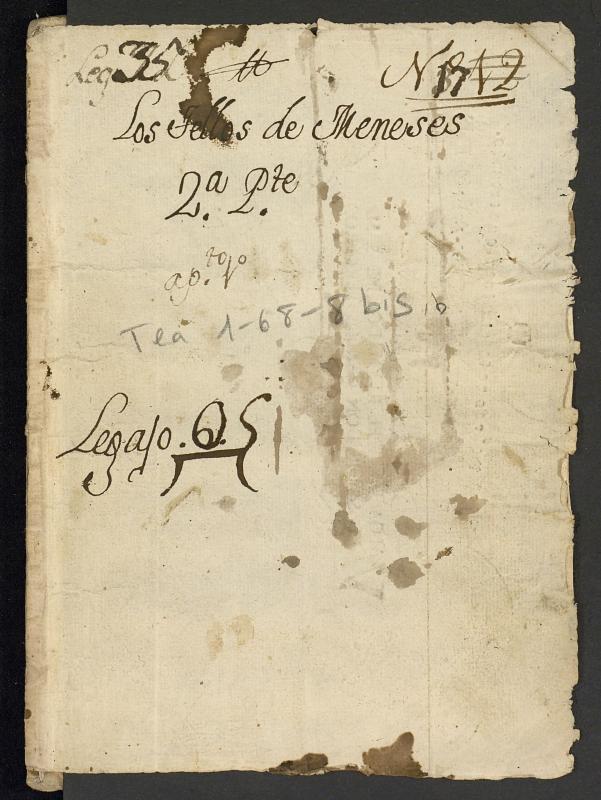 Leg 35 tt N 17
Los Tellos de Meneses
2.ª P.te
ap.to 1º
Tea 1-68-8 bis, b
Legajo. 6. S